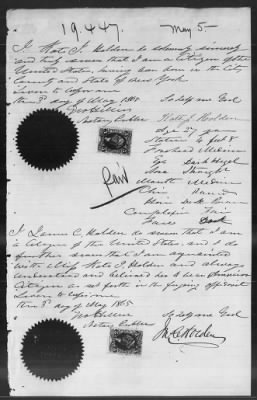 19.447. May 5-
I Kate J. Holden do solemnly sincerely
and truly swear that I am a Citizen of the
United States, having been born in the City
County and State of New York
Sworn to before me
this 3d day of May 1865 So help me God
Notary Public Kate J. Holden
Age 27 years
Stature 5 feet
Forehead Medium
Eye Dark Hazel
Nose Straight
Mouth Medium
Chin Round
Hair Dark Brown
Complexion Fair
Face
I James C. Holden do swear that I am
a Citizen of the United States, and I do
further swear that I am acquainted
with Kate J. Holden and always
understood and believed her to be an American
Citizen as set forth in the foregoing affidavit
Sworn to before me
this 3d day of May 1865 So help me God
Notary Public
J. C. Holden